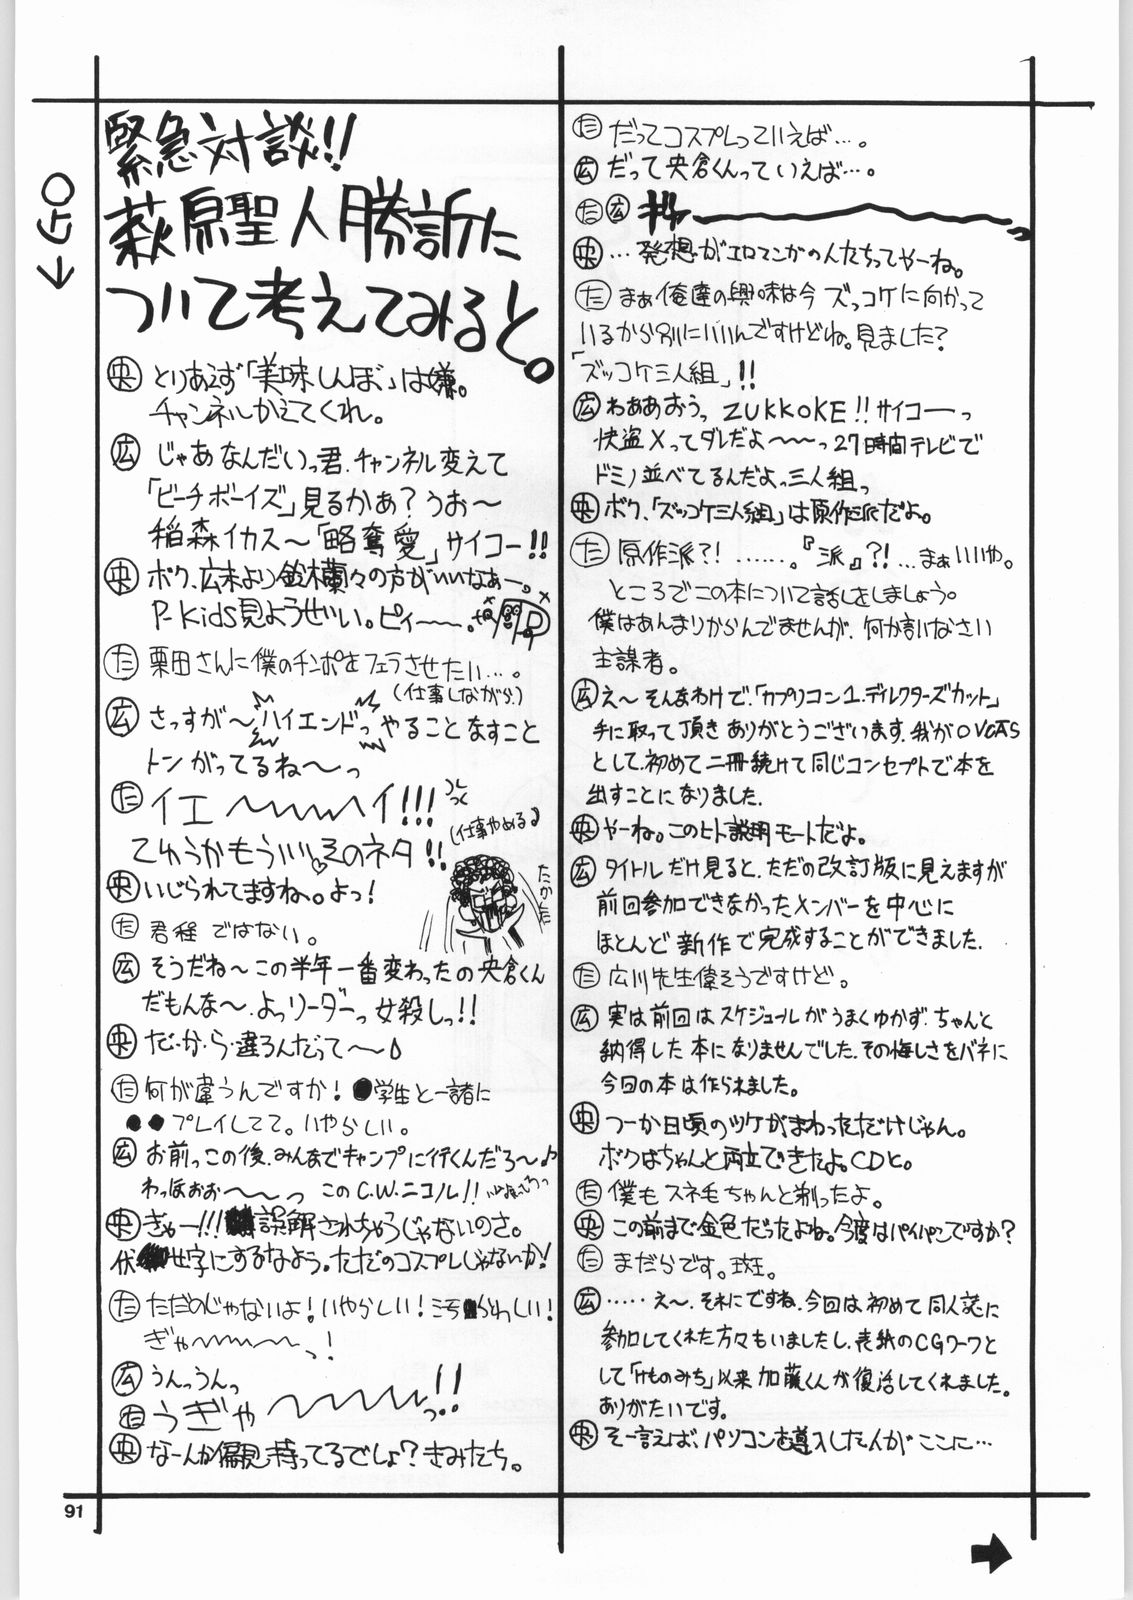 緊急対談!!
萩原聖人勝訴に
ついて考えてみると。
←GO
央 とりあえず「美味しんぼ」は嫌。
チャンネルかえてくれ。
広 じゃあなんだいっ君、チャンネル変えて
「ビーチボーイズ」見るかぁ?うお〜
稲森イカス〜「略奪愛」サイコー!!
央 ボク、広末より鈴木蘭々の方がいいなぁー。
P-kids見ようぜいい。ピィ〜〜。
た 栗田さんに僕のチンポをフェラさせたい…。
(仕事しながら)
広 さっすが〜ハイエンドっやることなすこと
トンがってるね〜〜っ
た イエ〜〜〜イ!!!
(仕事やめる♪
てゆうかもういい。そのネタ!!
央 いじられてますね。よっ!
た 君程ではない。
広 そうだね〜この半年一番変わったの央倉くん
だもんな〜、よっリーダーっ女殺しっ!!
央 だ・か・ら・違ろんだって〜〜♪
た 何が違うんですか!●学生と一諸に
●●プレイしてて。いやらしい。
広 お前っこの後、みんなでキャンプに行くんだろ〜♪
わっほぉぉ〜〜っ このC.W.ニコル!!
央 ぎゃー!!!誤解されちゃうじゃないのさ。
伏せ字にするなよう。ただのコスプレじゃないか!
た ただのじゃないよ!いやらしい!
ぎゃ〜〜〜っ!
広 うんっうんっ
うぎゃ〜〜〜っ!!
央 なーんか偏見持ってるでしょ?きみたち。
た だってコスプレっていえば…。
広 だって央倉くんっていえば…。
た 広
央 …発想がエロマンガの人たちってやーね。
た まぁ俺達の興味は今ズッコケに向かって
いるから別にいいんですけどね。見ました?
「ズッコケ三人組」!!
広 わああおうっ ZUKKOKE!!サイコーーっ
快盗Xってダレだよ〜〜っ27時間テレビで
ドミノ並べてるんだよっ三人組っ
央 ボク、「ズッコケ三人組」は原作派だよ。
た 原作派?!……。『派』?!…まぁいいや。
ところでこの本について話しをしましょう。
僕はあんまりからんでませんが、何か言いなさい
主謀者。
広 え〜そんなわけで、「カプリコン1.ディレクターズカット」
手に取って頂きありがとうございます、我がOVCAS
として、初めて二冊続けて同じコンセプトで本を
出すことになりました。
央 やーね。このヒト説明モードだよ。
広 タイトルだけ見ると、ただの改訂版に見えますが
前回参加できなかったメンバーを中心に
ほとんど新作で完成することができました。
た 広川先生偉そうですけど。
広 実は前回はスケジュールがうまくゆかず、ちゃんと
納得した本になりませんでした。その悔しさをバネに
今回の本は作られました。
央 つーか日頃のツケがまわっただけじゃん。
ボクはちゃんと両立できたよ。CDと。
た 僕もスネ毛ちゃんと剃ったよ。
央 この前まで金色だったよね。今度はパイパンですか?
た まだらです。斑。
広 ……え〜、それにですね、今回は初めて同人誌に
参加してくれた方々もいましたし、表紙のCGワークと
して「けものみち」以来加藤くんが復活してくれました。
ありがたいです。
央 そー言えば、パソコンを導入した人がここに…
91